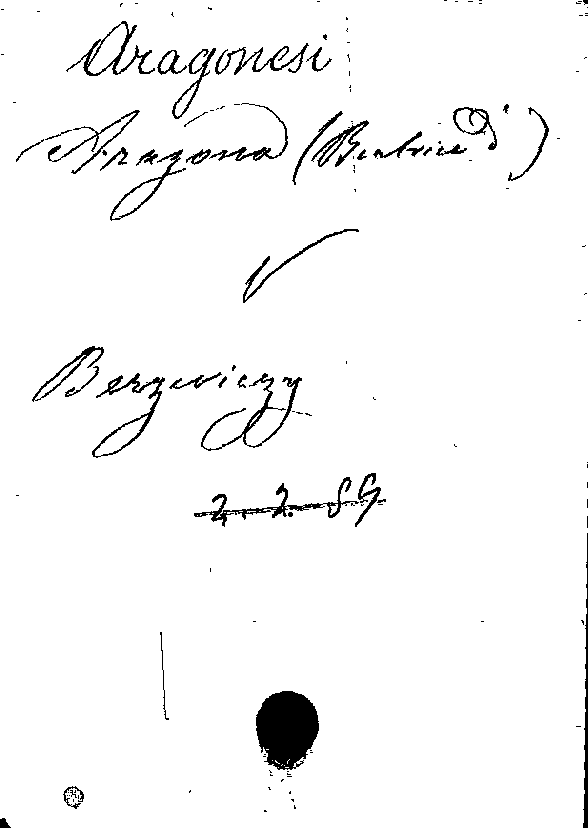 Aragonesi
Aragona (Beatrice d')
V
Berzeviczy
2. 2. 89